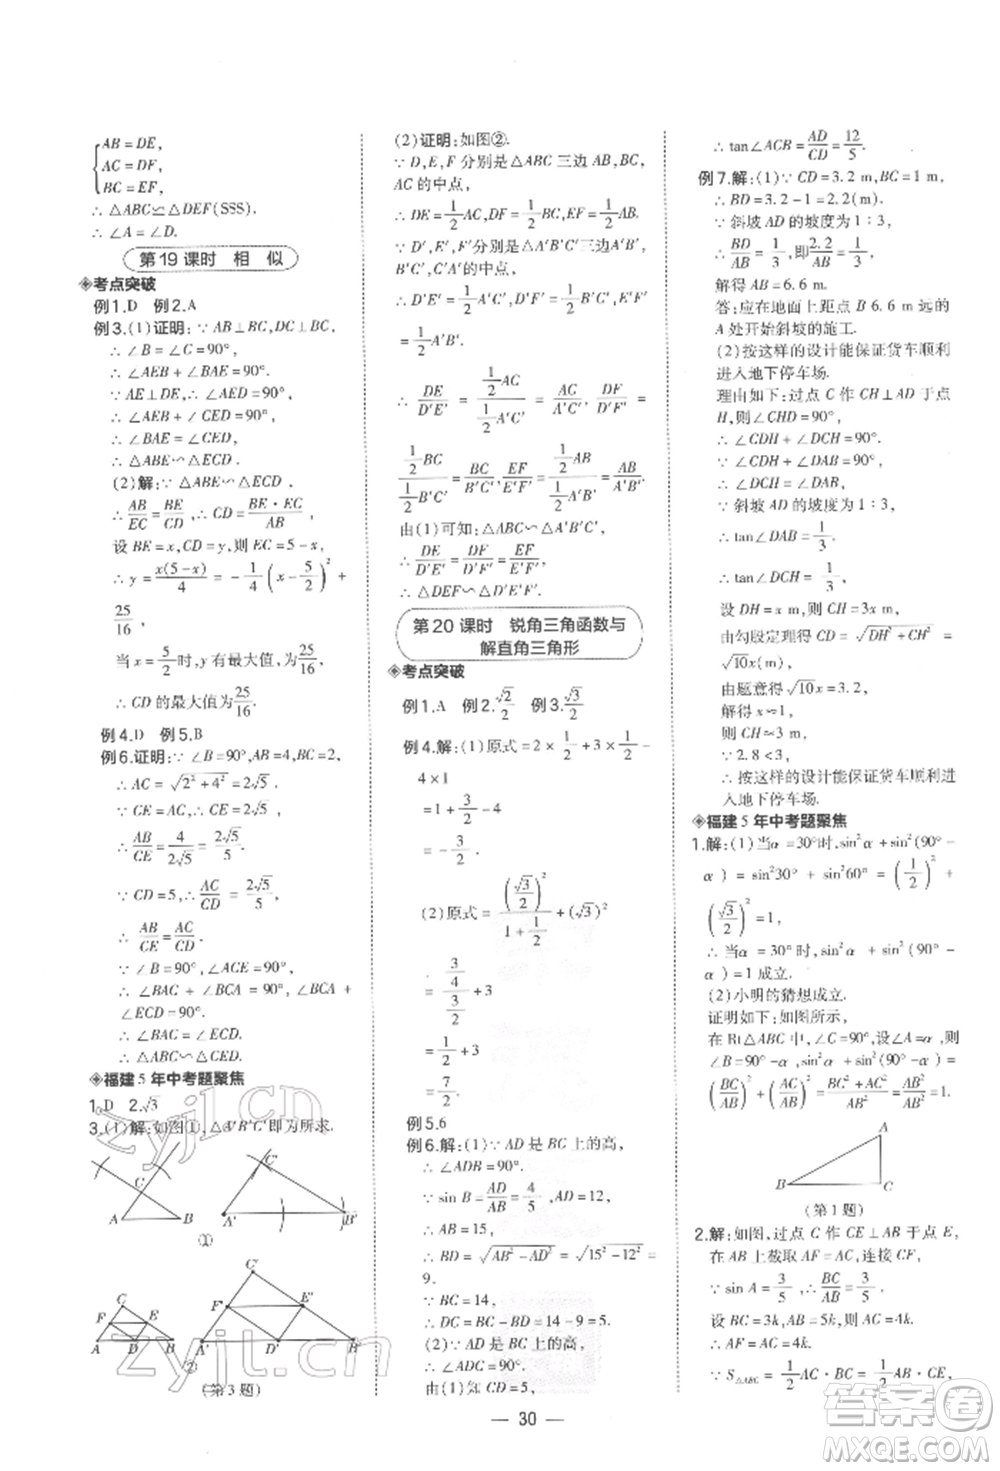 AB=DE,
AC=DF,
BC=EF,
∴ △ABC≌△DEF(SSS).
∴ ∠A=∠D.
第19课时 相 似
考点突破
例1.D 例2.A
例3.(1)证明:∵ AB⊥BC,DC⊥BC,
∴ ∠B=∠C=90°.
∴ ∠AEB+∠BAE=90°.
∵ AE⊥DE,∴ ∠AED=90°.
∴ ∠AEB+∠CED=90°.
∴ ∠BAE=∠CED.
∴ △ABE∽△ECD.
(2)解:∵ △ABE∽△ECD,
∴ AB/EC=BE/CD,∴ CD=BE·EC/AB.
设 BE=x,CD=y,则 EC=5-x,
∴ y=x(5-x)/4=-1/4(x-5/2)²+
25/16.
当 x=5/2时,y有最大值,为25/16,
∴ CD的最大值为25/16.
例4.D 例5.B
例6.证明:∵ ∠B=90°,AB=4,BC=2,
∴ AC=√(2²+4²)=2√5.
∵ CE=AC,∴ CE=2√5.
∴ AB/CE=4/(2√5)=2√5/5.
∵ CD=5,∴ AC/CD=2√5/5.
∴ AB/CE=AC/CD.
∵ ∠B=90°,∠ACE=90°,
∴ ∠BAC+∠BCA=90°,∠BCA+
∠ECD=90°.
∴ ∠BAC=∠ECD.
∴ △ABC∽△CED.
福建5年中考题聚焦
1.D 2.√3
3.(1)解:如图①,△A'B'C'即为所求.
C C'
A B A' B'
①
C'
C F' E'
F E
A D B A' D' B'
②
(第3题)
(2)证明:如图②.
∵ D,E,F 分别是△ABC 三边 AB,BC,
AC 的中点,
∴ DE=1/2AC,DF=1/2BC,EF=1/2AB.
∵ D',E',F'分别是△A'B'C'三边A'B',
B'C',A'C'的中点,
∴ D'E'=1/2A'C',D'F'=1/2B'C',E'F'=
1/2A'B'.
∴ DE/D'E'=(1/2AC)/(1/2A'C')=AC/A'C',DF/D'F'=
(1/2BC)/(1/2B'C')=BC/B'C',EF/E'F'=(1/2AB)/(1/2A'B')=AB/A'B'.
由(1)可知:△ABC∽△A'B'C',
∴ DE/D'E'=DF/D'F'=EF/E'F'.
∴ △DEF∽△D'E'F'.
第20课时 锐角三角函数与
解直角三角形
考点突破
例1.A 例2.√2/2 例3.√3/2
例4.解:(1)原式=2×1/2+3×1/2-
4×1
=1+3/2-4
=-3/2.
(2)原式=(√3/2)²/(1+1/2)+(√3)²
=(3/4)/(3/2)+3
=1/2+3
=7/2.
例5.6
例6.解:(1)∵ AD 是 BC 上的高,
∴ ∠ADB=90°.
∵ sin B=AD/AB=4/5,AD=12,
∴ AB=15,
∴ BD=√(AB²-AD²)=√(15²-12²)=
9.
∵ BC=14,
∴ DC=BC-BD=14-9=5.
(2)∵ AD 是 BC 上的高,
∴ ∠ADC=90°.
由(1)知 CD=5,
∴ tan∠ACB=AD/CD=12/5.
例7.解:(1)∵ CD=3.2 m,BC=1 m,
∴ BD=3.2-1=2.2(m).
∵ 斜坡 AD 的坡度为 1:3,
∴ BD/AB=1/3,即2.2/AB=1/3,
解得 AB=6.6 m.
答:应在地面上距点 B 6.6 m 远的
A 处开始斜坡的施工.
(2)按这样的设计能保证货车顺利
进入地下停车场.
理由如下:过点 C 作 CH⊥AD 于点
H,则∠CHD=90°.
∴ ∠CDH+∠DCH=90°.
∵ ∠CDH+∠DAB=90°,
∴ ∠DCH=∠DAB.
∵ 斜坡 AD 的坡度为 1:3,
∴ tan∠DAB=1/3.
∴ tan∠DCH=1/3.
设 DH=x m,则 CH=3x m,
由勾股定理得 CD=√(DH²+CH²)=
√10x(m).
由题意得√10x=3.2,
解得 x≈1.
则 CH≈3 m.
∵ 2.8<3,
∴ 按这样的设计能保证货车顺利进
入地下停车场.
福建5年中考题聚焦
1.解:(1)当α=30°时,sin²α+sin²(90°-
α)=sin²30°+sin²60°=(1/2)²+
(√3/2)²=1,
∴ 当α=30°时,sin²α+sin²(90°-
α)=1成立.
(2)小明的猜想成立.
证明如下:如图所示,
在 Rt△ABC 中,∠C=90°,设∠A=α,则
∠B=90°-α,sin²α+sin²(90°-α)
=(BC/AB)²+(AC/AB)²=(BC²+AC²)/AB²=AB²/AB²=1.
A
B C
(第1题)
2.解:如图,过点 C 作 CE⊥AB 于点 E,
在 AB 上截取 AF=AC,连接 CF.
∵ sin A=3/5,∴ BC/AB=3/5.
设 BC=3k,AB=5k,则 AC=4k.
∴ AF=AC=4k.
∵ S△ABC=1/2AC·BC=1/2AB·CE,
30
zyjl.cn
zyjl.cn
答案圈
MXQE.COM